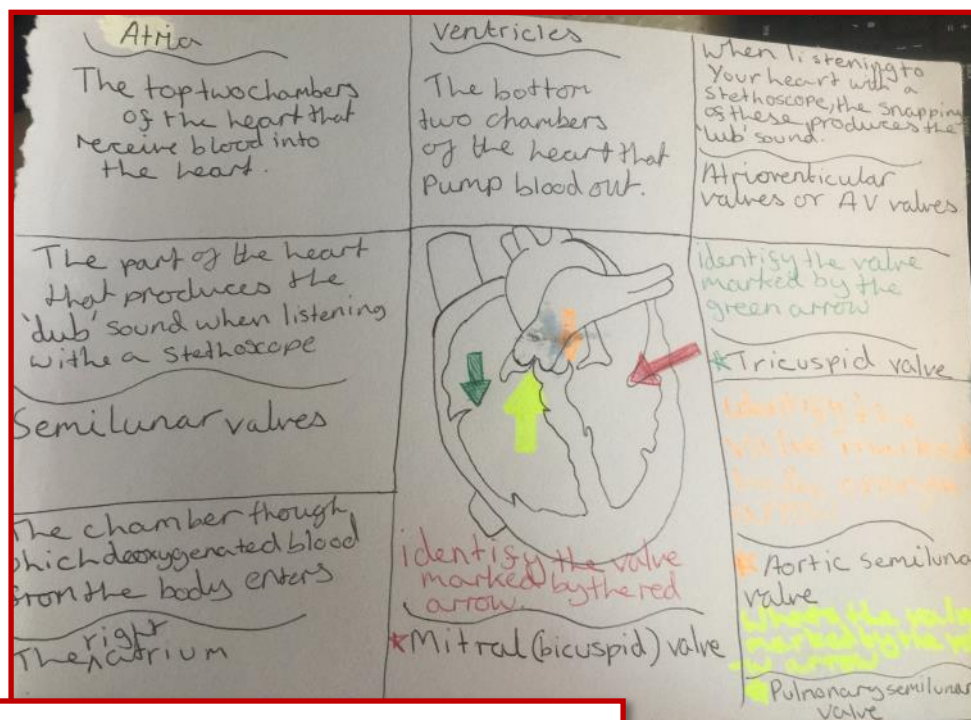 Atria
The top two chambers
of the heart that
receive blood into
the heart.
ventricles
The bottom
two chambers
of the heart that
pump blood out.
When listening to
Your heart with a
stethoscope, the snapping
of these produces the
'lub' sound.
Atrioventicular
valves or AV valves
The part of the heart
that produces the
'dub' sound when listening
withe a stethoscope
Semilunar valves
identify the valve
marked by the
green arrow
Tricuspid valve
Identify the
valve marked
by the orange
arrow
Aortic semiluna
valve
The chamber though
which deoxygenated blood
from the body enters
The right atrium
identify the valve
marked by the red
arrow.
Mitral (bicuspid) valve
the valve
marked by the
arrow
Pulmonary semilunar
valve